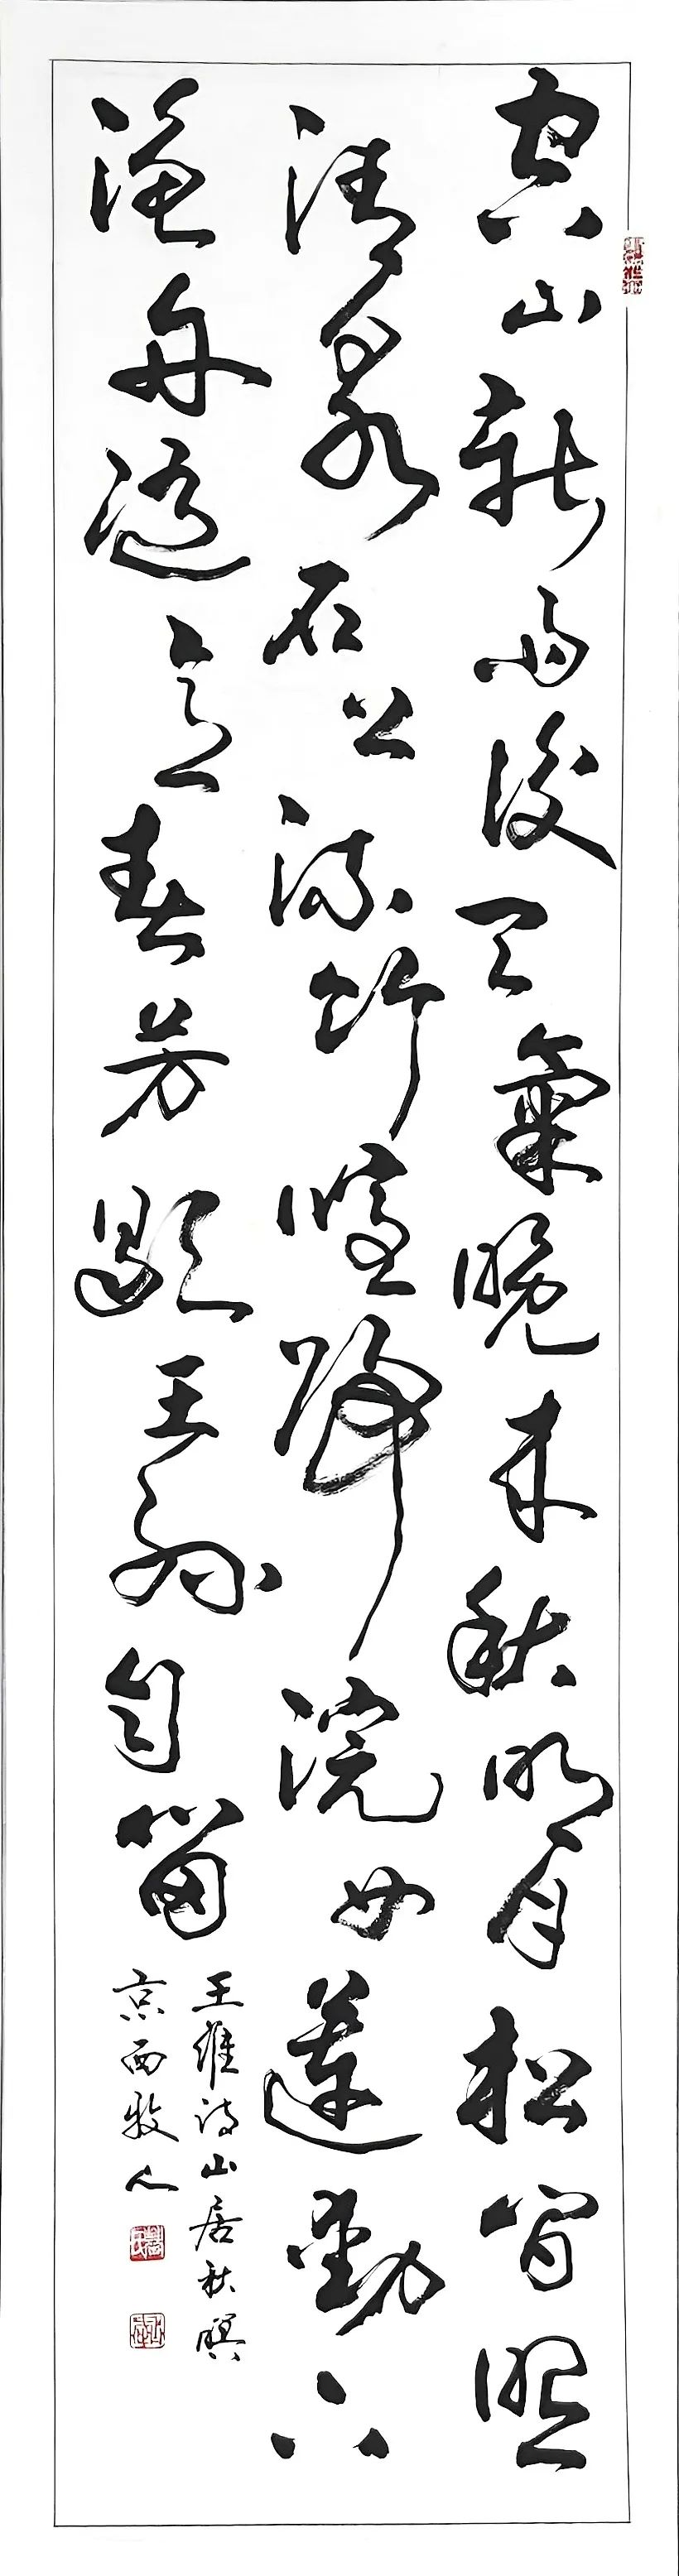 空山新雨後天氣晚来秋明月松間照
清泉石上流竹喧歸浣女蓮動下
漁舟隨意春芳歇王孫自留
王維詩山居秋暝
京西牧人